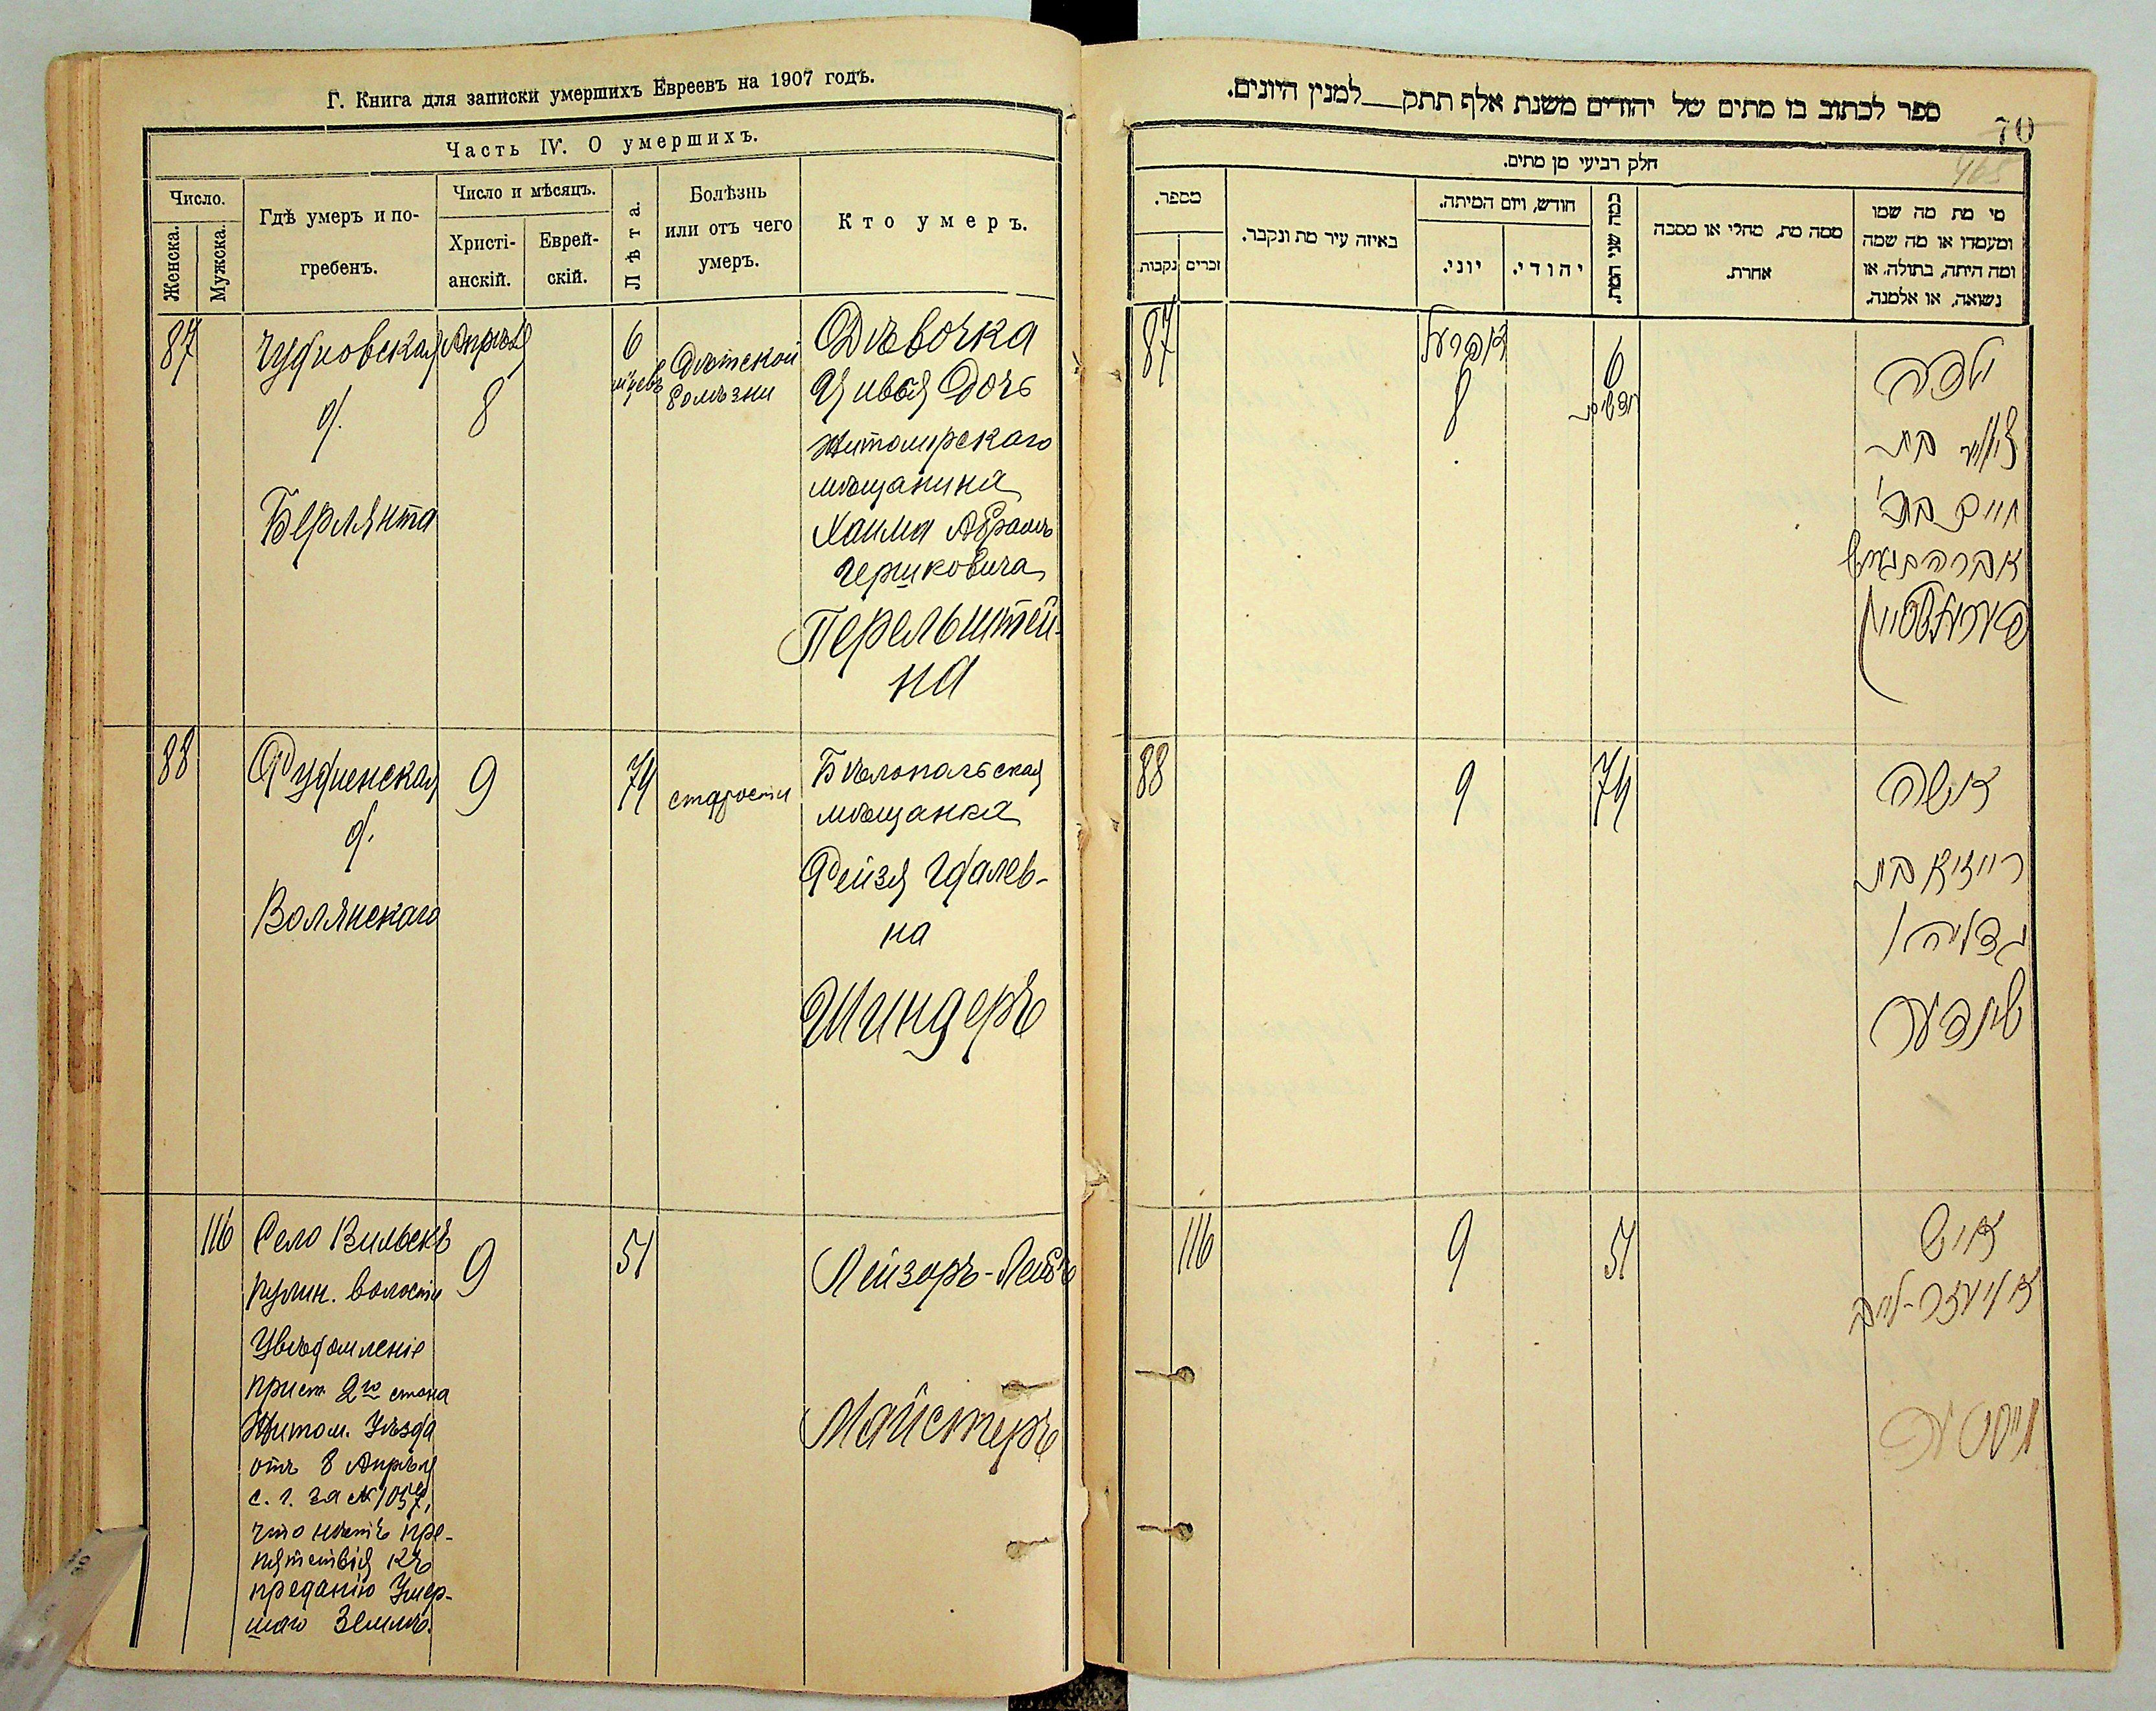 Г. Книга для записки умершихъ Евреевъ на 1907 годъ.
Часть IV. О умершихъ.
Число.
Женска.
Мужска.
Гдѣ умеръ и по-
гребенъ.
Число и мѣсяцъ.
Христі-
анскій.
Еврей-
скій.
Лѣта.
Болѣзнь
или отъ чего
умеръ.
Кто умеръ.
87
Чудновская
д.
Берлянта
Апрѣля
8
6
мѣцевъ
Дѣтской
болѣзни
Дѣвочка
Цивья Дочь
Житомирскаго
мѣщанина
Хаима Абрамъ
Гершковича
Перельштей-
на
88
Рудненская
д.
Волянскаго
9
74
старости
Бѣлопольская
мѣщанка
Рейзя Гдалев-
на
Шиндеръ
116
Село Вильскъ
Кулин. волости
Увѣдомленіе
прист. 2го стана
Житом. Уѣзда
отъ 8 Апрѣля
с. г. за № 1057,
что нѣтъ пре-
пятствія къ
преданію Умер-
шаго Землѣ.
9
51
Лейзоръ-Лейбъ
Майстеръ
ספר לכתוב בו מתים של יהודים משנת אלף תתק__למנין היונים.
70
465
חלק רביעי מן מתים.
מספר.
נקבות.
זכרים
באיזה עיר מת ונקבר.
חודש, ויום המיתה.
יוני.
יהודי.
כמה שני המת.
ממה מת, מחלי או מסבה
אחרת.
מי מת מה שמו
ומעמדו או מה שמה
ומה היתה, בתולה, או
נשואה, או אלמנה.
87
אפריל
8
6
חדשים
ילדה
צוויע בת
חיים בר'
אברהם גערש
פערעלשטיין
88
9
74
אשה
רייזיא בת
גדליה
שינדער
116
9
51
איש
אליעזר-ליב
מייסטער